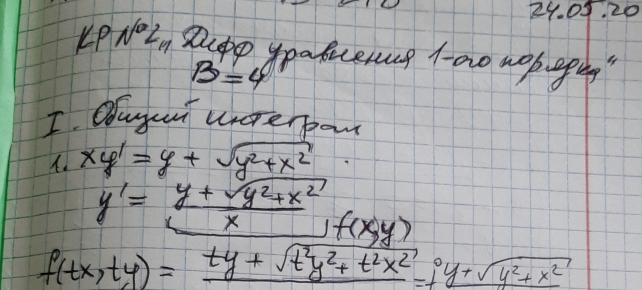 24.05.20
КР №2 „Дифф уравнения 1-ого порядка"
В=4
I. Общий интеграл
1. xy' = y + √(y²+x²)
y' = (y + √(y²+x²))/x
f(x,y)
f(tx,ty) = ty + √(t²y²+t²x²) = y + √(y²+x²)